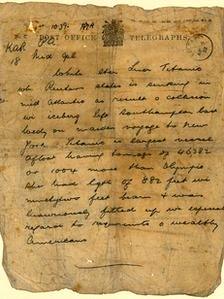 POST OFFICE TELEGRAPHS
18
White Star Liner Titanic
states is sinking in
mid Atlantic as result a collision
wi iceberg left Southampton last
on maiden voyage to New
York. Titanic is largest vessel
afloat having tonnage of 46382
or 1004 more than Olympic
She had lgth of 882 feet wi
ninetytwo feet beam & was
luxuriously fitted up wi especial
regard to requirements o wealthy
Americans